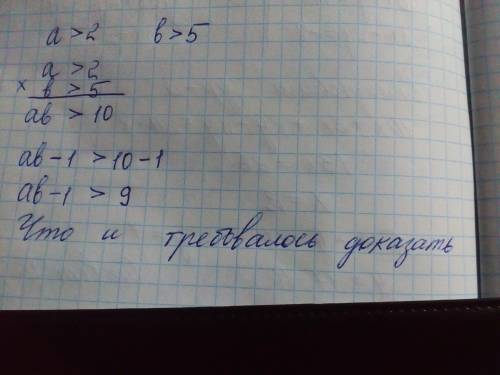 a > 2 в > 5
a > 2
× в > 5
ав > 10
ав - 1 > 10 - 1
ав - 1 > 9
Что и требовалось доказать